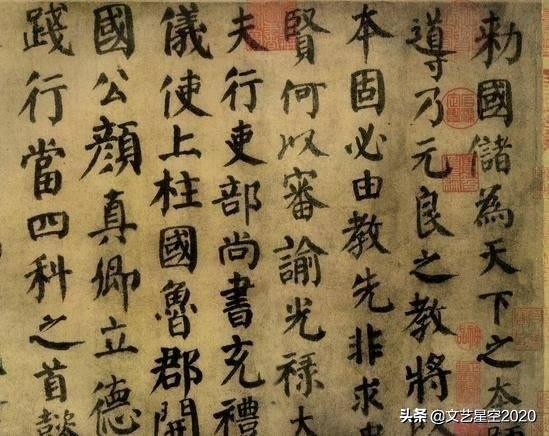 勅國儲為天下之本
導乃元良之教將
本固必由教先非求
賢何以審諭光祿大
夫行吏部尚書充禮
儀使上柱國魯郡開
國公顏真卿立德
踐行當四科之首懿
头条 @文艺星空2020